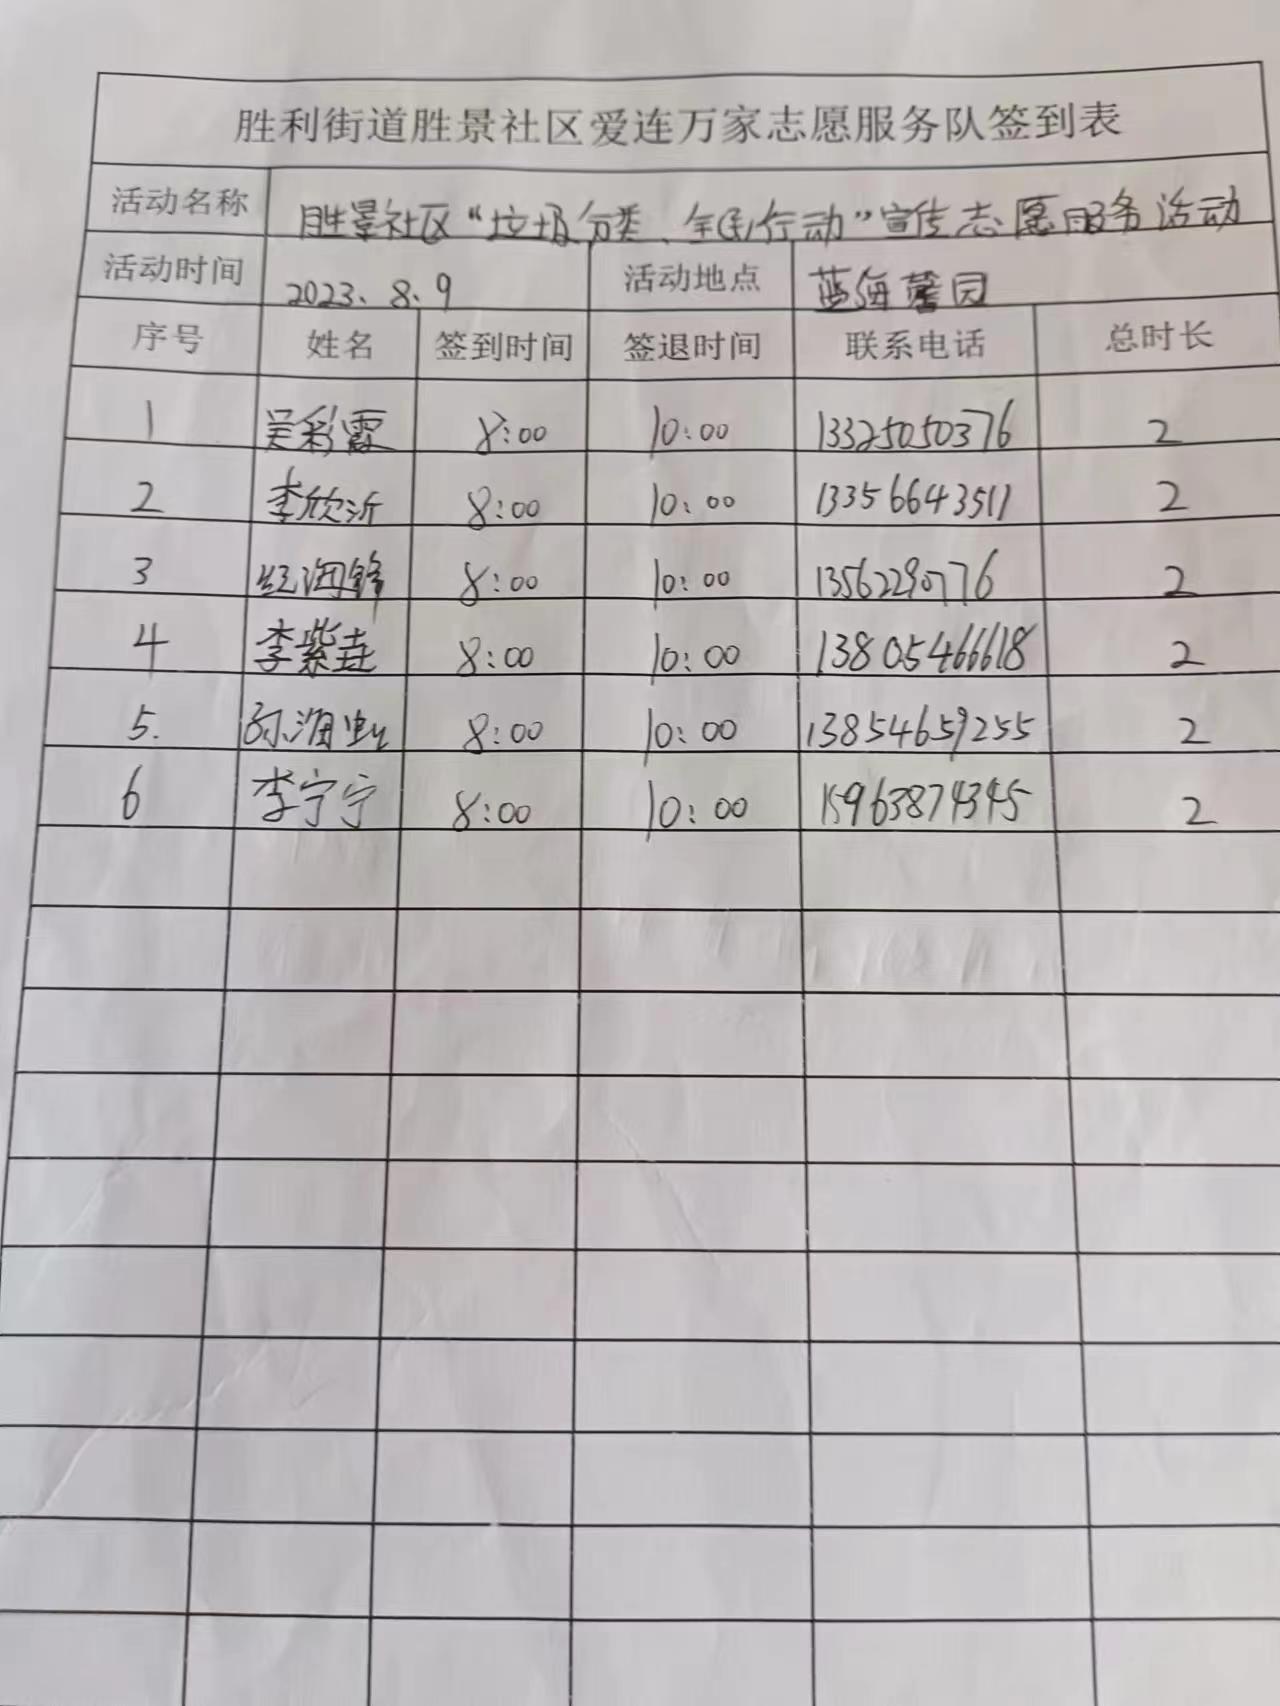 胜利街道胜景社区爱连万家志愿服务队签到表
活动名称 胜景社区“垃圾分类、全民行动”宣传志愿服务活动
活动时间 2023、8、9 活动地点 蓝海馨园
序号 姓名 签到时间 签退时间 联系电话 总时长
1 吴彩霞 8:00 10:00 13325050376 2
2 李欣沂 8:00 10:00 13356643511 2
3 8:00 10:00 13562290776 2
4 李紫垚 8:00 10:00 13805466618 2
5. 8:00 10:00 13854659255 2
6 李宁宁 8:00 10:00 15963874345 2